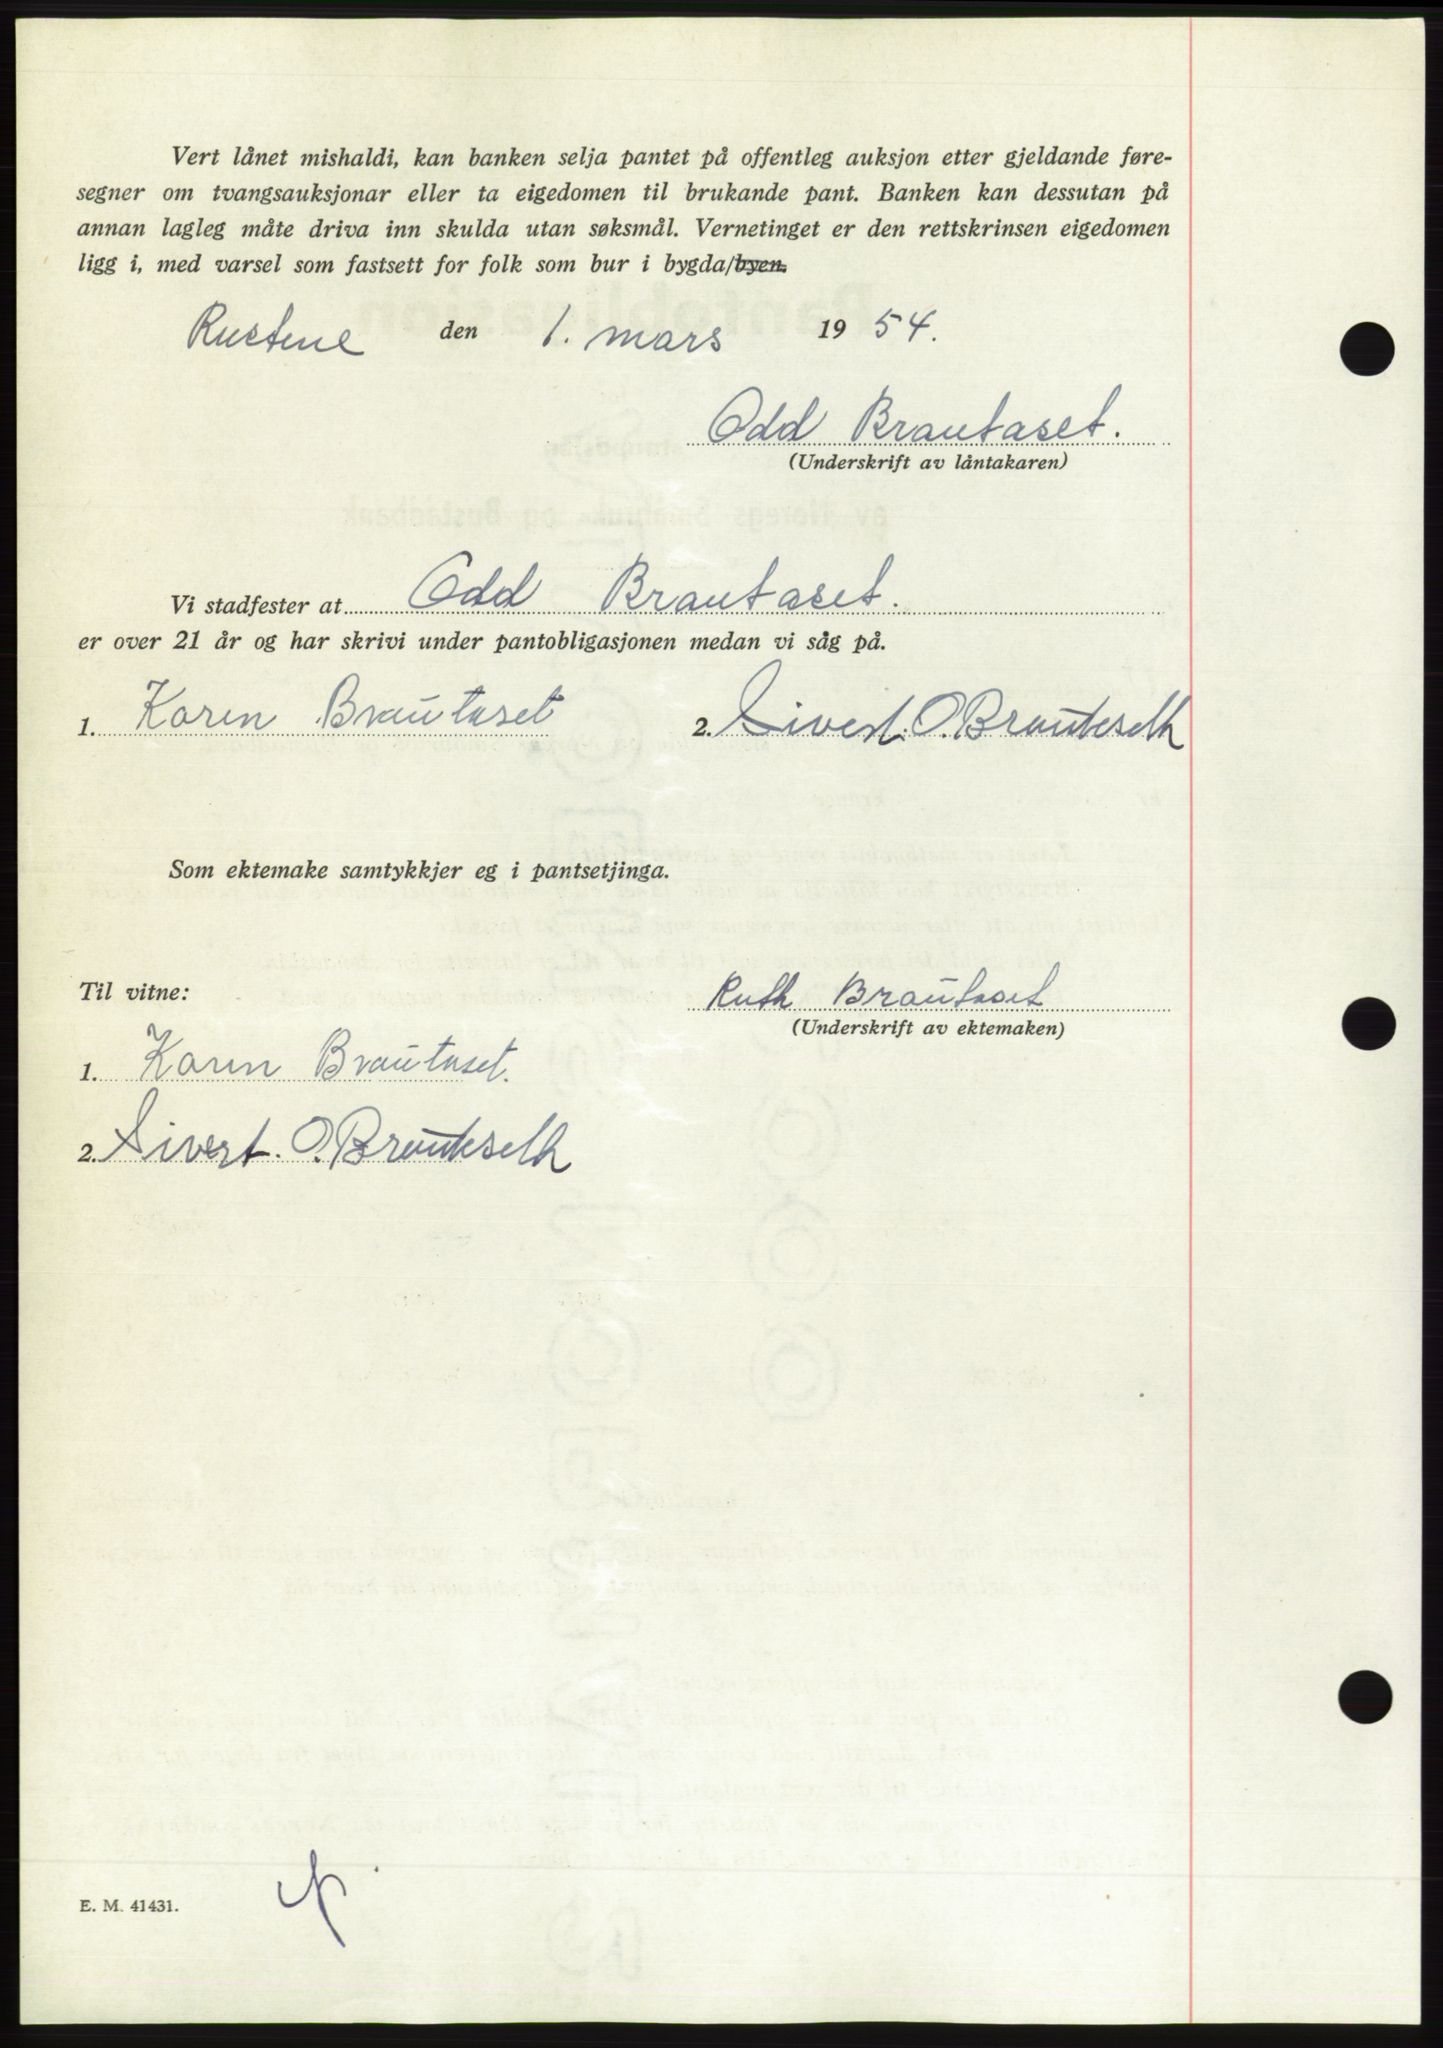 Vert lånet mishaldi, kan banken selja pantet på offentleg auksjon etter gjeldande føre-
segner om tvangsauksjonar eller ta eigedomen til brukande pant. Banken kan dessutan på
annan lagleg måte driva inn skulda utan søksmål. Vernetinget er den rettskrinsen eigedomen
ligg i, med varsel som fastsett for folk som bur i bygda/byen.
den 1. mars 1954.
Odd Brautaset.
(Underskrift av låntakaren)
Vi stadfester at Odd Brautaset.
er over 21 år og har skrivi under pantobligasjonen medan vi såg på.
1. Karen Brautaset 2. Sivert. O. Brauteseth
Som ektemake samtykkjer eg i pantsetjinga.
Til vitne: Ruth Brautaset
(Underskrift av ektemaken)
1. Karen Brautaset.
2. Sivert. O. Brauteseth
E. M. 41431.